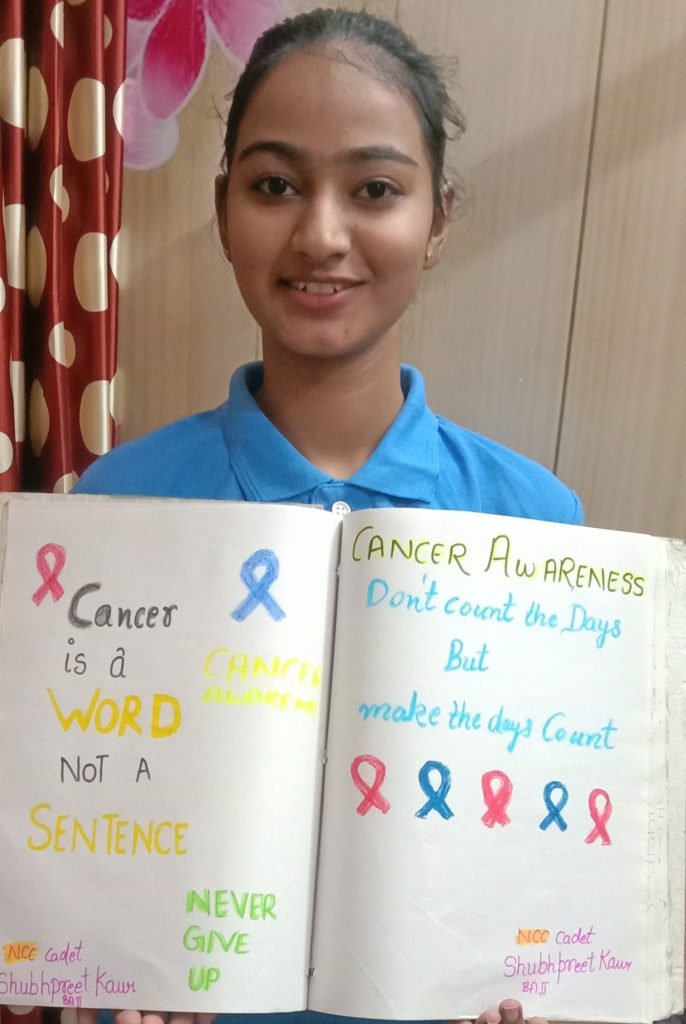 Cancer
is a
WORD
NOT A
SENTENCE
CANCER
AWARENE
NEVER
GIVE
UP
NCC Cadet
Shubhpreet Kaur
BA II
CANCER AWARENESS
Don't count the Days
But
make the days Count
NCC Cadet
Shubhpreet Kaur
BA II